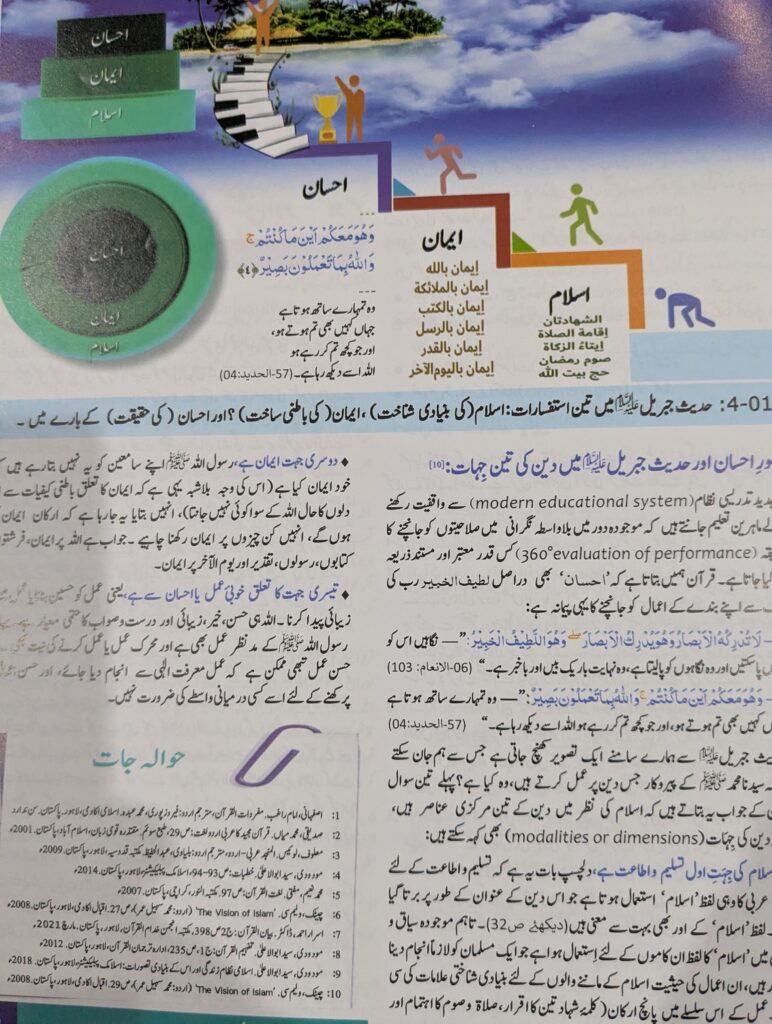 احسان
ایمان
اسلام
احسان
ایمان
اسلام
احسان
وَهُوَ مَعَكُمْ اَيْنَ مَا كُنْتُمْ ج
وَاللّٰهُ بِمَا تَعْمَلُوْنَ بَصِيْرٌ ﴿٤﴾
وہ تمہارے ساتھ ہوتا ہے
جہاں کہیں بھی تم ہوتے ہو،
اور جو کچھ تم کر رہے ہو
اللہ اسے دیکھ رہا ہے۔ (57-الحدید:04)
ایمان
إيمان بالله
إيمان بالملائكة
إيمان بالكتب
إيمان بالرسل
إيمان بالقدر
إيمان باليوم الآخر
اسلام
الشهادتان
إقامة الصلاة
إيتاءُ الزكاة
صوم رمضان
حج بيت الله
4-01: حدیث جبریل علیہ السلام میں تین استفسارات: اسلام (کی بنیادی شناخت)، ایمان (کی باطنی ساخت)؟ اور احسان (کی حقیقت) کے بارے میں۔
احسان اور حدیث جبریل علیہ السلام میں دین کی تین جہات: [10]
تدریسی نظام (modern educational system) سے واقفیت رکھنے
ماہرین تعلیم جانتے ہیں کہ موجودہ دور میں بلاواسطہ نگرانی میں صلاحیتوں کو جانچنے کا
(360°evaluation of performance) کس قدر معتبر اور مستند ذریعہ
جاتا ہے۔ قرآن ہمیں بتاتا ہے کہ ’احسان‘ بھی دراصل لطیف الخبیر رب کی
سے اپنے بندے کے اعمال کو جانچنے کا یہی پیمانہ ہے:
لَا تُدْرِكُهُ الْاَبْصَارُ وَهُوَ يُدْرِكُ الْاَبْصَارَ وَهُوَ اللَّطِيْفُ الْخَبِيْرُ: ”— نگاہیں اس کو
پا سکتیں اور وہ نگاہوں کو پا لیتا ہے، وہ نہایت باریک بیں اور باخبر ہے۔“ (06-الانعام: 103)
وَهُوَ مَعَكُمْ اَيْنَ مَا كُنْتُمْ وَاللّٰهُ بِمَا تَعْمَلُوْنَ بَصِيْرٌ: ”— وہ تمہارے ساتھ ہوتا ہے
کہیں بھی تم ہوتے ہو، اور جو کچھ تم کر رہے ہو اللہ اسے دیکھ رہا ہے۔“ (57-الحدید:04)
جبریل علیہ السلام سے ہمارے سامنے ایک تصویر کھنچ جاتی ہے جس سے ہم جان سکتے
سیدنا محمد ﷺ کے پیروکار جس دین پر عمل کرتے ہیں، وہ کیا ہے؟ پہلے تین سوال
کے جواب یہ بتاتے ہیں کہ اسلام کی نظر میں دین کے تین مرکزی عناصر ہیں،
دین کی جہات (modalities or dimensions) بھی کہہ سکتے ہیں:
کی جہتِ اول تسلیم و اطاعت ہے، دلچسپ بات یہ ہے کہ تسلیم و اطاعت کے لئے
عربی کا وہی لفظ ’اسلام‘ استعمال ہوتا ہے جو اس دین کے عنوان کے طور پر برتا گیا
لفظ ’اسلام‘ کے اور بھی بہت سے معنی ہیں (دیکھئے ص32)۔ تاہم موجودہ سیاق و
میں ’اسلام‘ کا لفظ ان کاموں کے لئے استعمال ہوا ہے جو ایک مسلمان کو لازماً انجام دینا
ہیں، ان اعمال کی حیثیت اسلام کے ماننے والوں کے لئے بنیادی شناختی علامات کی سی
عمل کے اس سلسلے میں پانچ ارکان (کلمۂ شہادتین کا اقرار، صلاۃ و صوم کا اہتمام اور
♦ دوسری جہت ایمان ہے، رسول اللہ ﷺ اپنے سامعین کو یہ نہیں بتا رہے ہیں
خود ایمان کیا ہے (اس کی وجہ بلاشبہ یہی ہے کہ ایمان کا تعلق باطنی کیفیات سے
دلوں کا حال اللہ کے سوا کوئی نہیں جانتا)، انہیں بتایا یہ جا رہا ہے کہ ارکان ایمان
ہوں گے، انہیں کن چیزوں پر ایمان رکھنا چاہیے۔ جواب ہے اللہ پر ایمان، فرشتوں
کتابوں، رسولوں، تقدیر اور یوم الآخر پر ایمان۔
♦ تیسری جہت کا تعلق خوبئ عمل یا احسان سے ہے، یعنی عمل کو حسین بنانا یا عمل میں
زیبائی پیدا کرنا۔ اللہ ہی حسن، خیر، زیبائی اور درست و صواب کا حتمی معیار ہے،
رسول اللہ ﷺ کے مدِ نظر عمل بھی ہے اور محرکِ عمل یا عمل کرنے کی نیت بھی
حسنِ عمل تبھی ممکن ہے کہ عمل معرفت الٰہی سے انجام دیا جائے، اور حسن
پرکھنے کے لئے اسے کسی درمیانی واسطے کی ضرورت نہیں۔
حوالہ جات
1: اصفہانی، امام راغب. مفردات القرآن، مترجم اردو: فیروزپوری، محمد عبدہ. اسلامی اکادمی، لاہور، پاکستان. سن ندارد
2: صدیقی، محمد میاں. قرآن مجید کا عربی اردو لغت: ص29، طبع سوئم. مقتدرہ قومی زبان، اسلام آباد، پاکستان. 2001ء
3: معلوف، لوئیس. المنجد عربی-اردو، مترجم اردو: بلیاوی، عبدالحفیظ. مکتبہ قدوسیہ، لاہور، پاکستان. 2009ء
4: مودودی، سید ابوالاعلیٰ. خطبات: ص93-94، اسلامک پبلیکیشنز، لاہور، پاکستان. 2014ء
5: محمد نعیم، مفتی. لغت القرآن: ص97. مکتبہ انور، کراچی، پاکستان. 2007ء
6: چیٹک، ولیم سی. ‘The Vision of Islam’ (اردو: محمد سہیل عمر)، ص27. اقبال اکادمی، لاہور، پاکستان. 2008ء
7: اسرار احمد، ڈاکٹر. بیان القرآن: ج2 ص398، مکتبہ انجمن خدام القرآن، لاہور، پاکستان. مارچ 2021ء
8: مودودی، سید ابوالاعلیٰ. تفہیم القرآن: ج1، ص235. ادارہ ترجمان القرآن، لاہور، پاکستان. 2012ء
9: مودودی، سید ابوالاعلیٰ. اسلامی نظام زندگی اور اس کے بنیادی تصورات: اسلامک پبلیکیشنز، لاہور، پاکستان. 2018ء
10: چیٹک، ولیم سی. ‘The Vision of Islam’ (اردو: محمد سہیل عمر)، ص29. اقبال اکادمی، لاہور، پاکستان. 2008ء